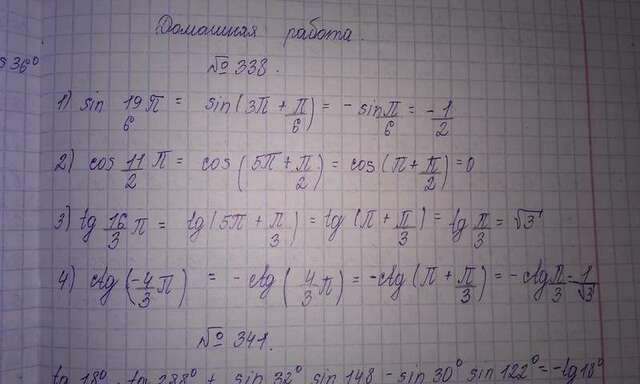 Домашняя работа.
s 36°
№ 338.
1) sin 19/6 π = sin(3π + π/6) = - sin π/6 = -1/2
2) cos 11/2 π = cos(5π + π/2) = cos(π + π/2) = 0
3) tg 16/3 π = tg(5π + π/3) = tg(π + π/3) = tg π/3 = √3
4) ctg(-4/3 π) = - ctg(4/3 π) = -ctg(π + π/3) = - ctg π/3 = 1/√3
№ 341.
tg 18° · tg 288° + sin 32° sin 148 - sin 30° sin 122° = -tg 18°